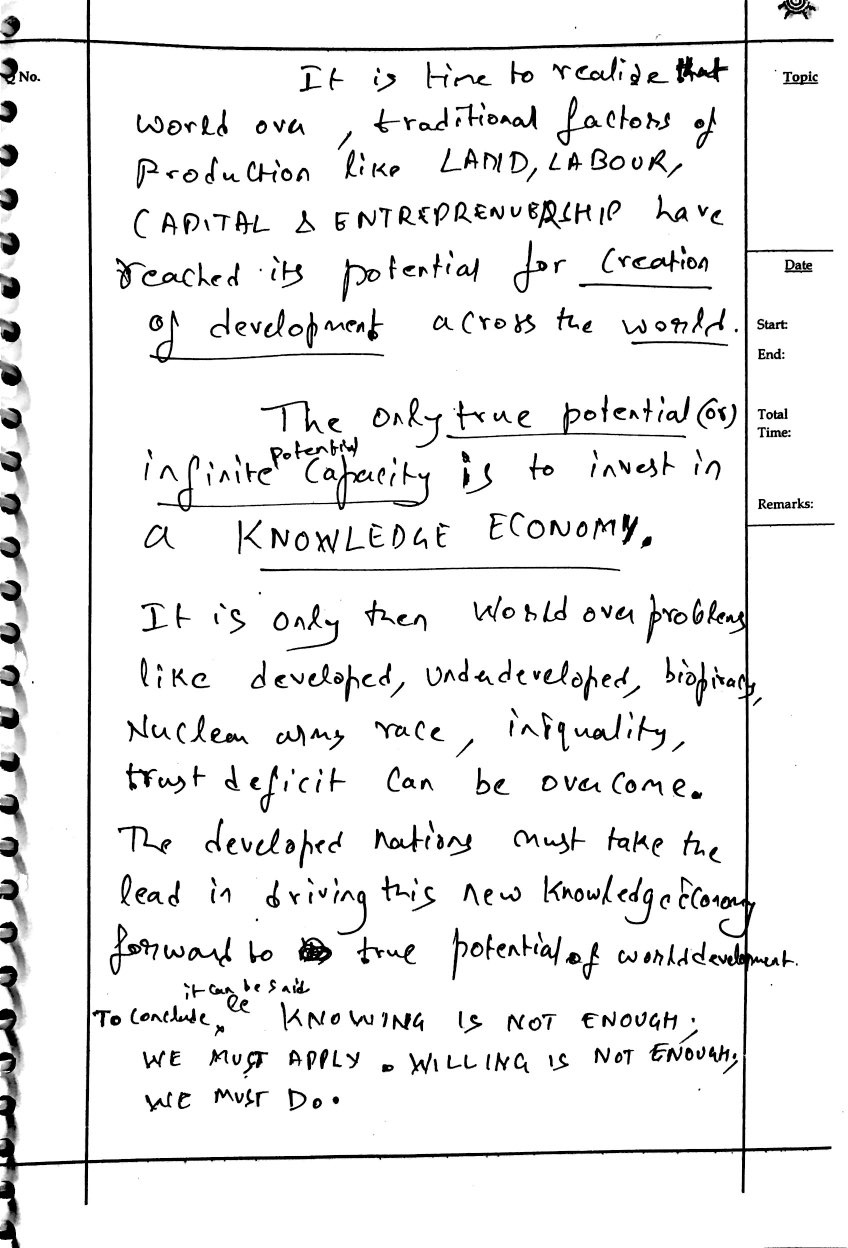 Q No.
Topic
It is time to realize that
world over, traditional factors of
Production like LAND, LABOUR,
CAPITAL & ENTREPRENUERSHIP have
reached its potential for Creation
of development across the world.
Date
Start:
End:
The only true potential (or)
infinite potential Capacity is to invest in
a KNOWLEDGE ECONOMY.
Total
Time:
Remarks:
It is only then World over problems
like developed, underdeveloped, biopiracy,
Nuclear arms race, inequality,
trust deficit can be overcome.
The developed nations must take the
lead in driving this new Knowledge Economy
forward to true potential of world development.
it can be said
To conclude, KNOWING IS NOT ENOUGH;
WE MUST APPLY. WILLING IS NOT ENOUGH;
WE MUST DO.